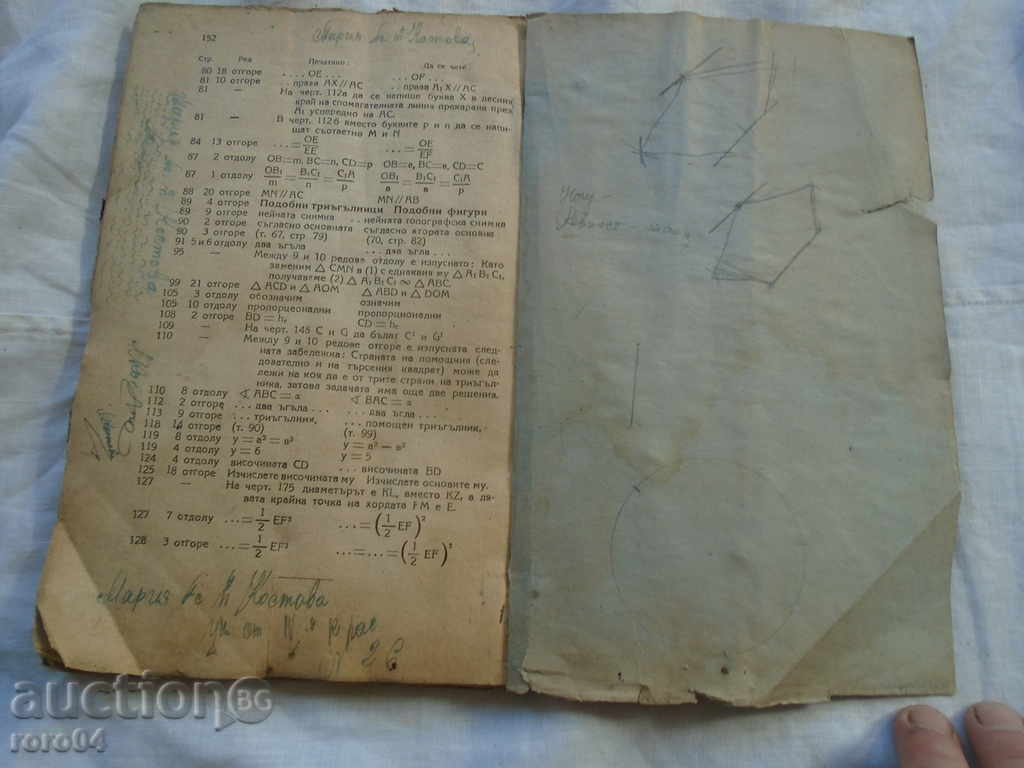 152
Мария Костова
Стр. Ред Печатано: Да се чете:
80 18 отгоре . . . . OE . . . . . . OF . . .
81 10 отгоре . . права AX//AC . . права A₁X//AC
81 — На черт. 112а да се напише буква X в десния
край на спомагателната линия прекарана през
A₁ успоредно на AC.
81 — В черт. 112б вместо буквите p и n да се напи-
шат съответно M и N
84 13 отгоре . . . = OE/EE . . . = OE/EF
87 2 отдолу OB=m, BC=n, CD=p OB=в, BC=в, CD=С
87 1 отдолу OB₁/m = B₁C₁/n = C₁A/p OB₁/а = B₁C₁/в = C₁A/p
88 20 отгоре MN//AC MN//AB
89 4 отгоре Подобни триъгълници Подобни фигури
89 9 отгоре нейната снимка . . нейната топографска снимка
90 2 отгоре съгласно основната съгласно втората основна
90 3 отгоре (т. 67, стр. 79) (70, стр. 82)
91 5 и 6 отдолу два ъгъла . . два ъгла . . .
95 — Между 9 и 10 редове отдолу е изпуснато: Като
заменим △ CMN в (1) с еднаквия му △ A₁B₁C₁,
получаваме (2) △ A₁B₁C₁ ∞ △ ABC.
99 21 отгоре △ ACD и △ AOM △ ABD и △ DOM
105 3 отдолу обозначим означим
105 10 отдолу пропорционели пропорционални
108 2 отгоре BD = hc CD = hc
109 — На черт. 148 C и G да бъдат C¹ и G¹
110 — Между 9 и 10 редове отгоре е изпусната след-
ната забележка: Страната на помощния (сле-
дователно и на търсения квадрат) може да
лежи на коя да е от трите страни на триъгъл-
ника, затова задачата има още две решения.
110 8 отдолу ∢ ABC = α ∢ BAC = α
112 2 отгоре . . . два ъгъла . . . . . . два ъгла . . .
113 9 отгоре . . . триъгълник, . . . помощен триъгълник,
118 14 отгоре (т. 90) (т. 99)
119 8 отдолу y = а² = в² y = а² — в²
119 4 отдолу y = 6 y = 5
124 4 отдолу височината CD . . . височината BD
125 18 отгоре Изчислете височината му Изчислете основите му.
127 — На черт. 175 диаметърът е KL, вместо KZ, а дя-
вата крайна точка на хордата FM е E.
127 7 отдолу . . . = 1/2 EF² . . . = (1/2 EF)²
128 3 отгоре . . . = 1/2 EF² . . . = . . . = (1/2 EF)²
Мария Костова
уч от
auctionBG
roro04